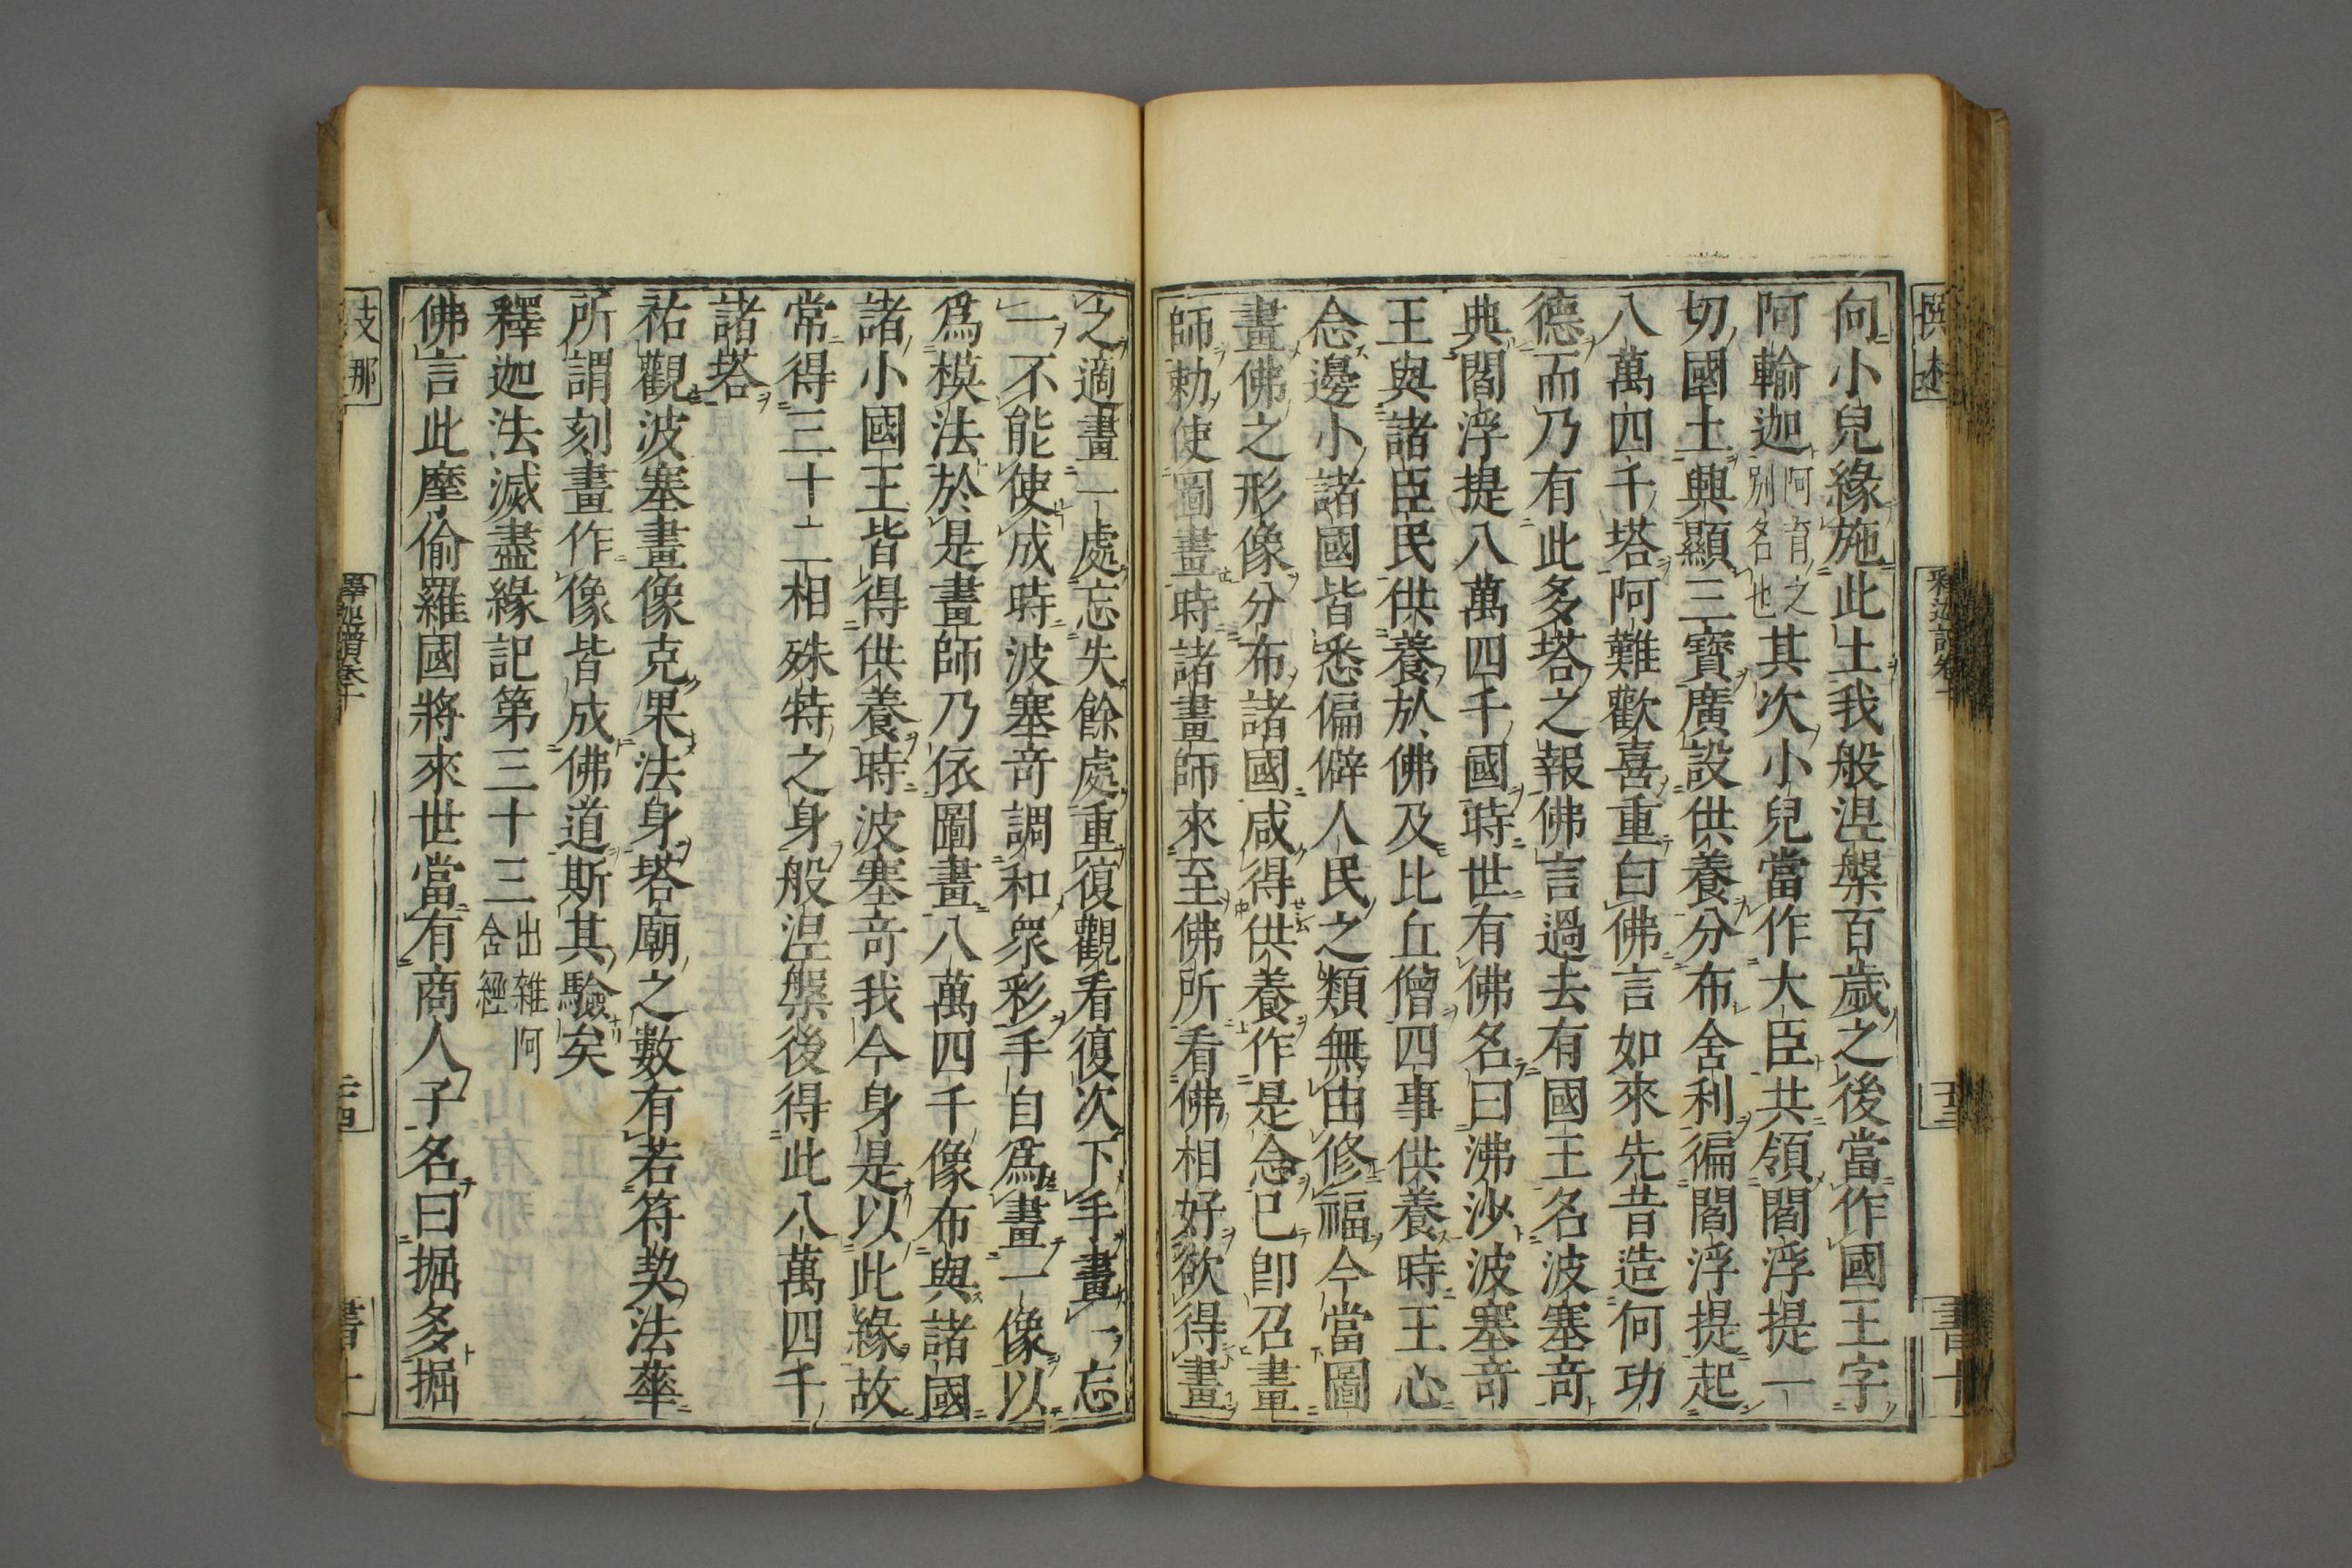 向小兒緣施此土我般涅槃百歲之後當作國王字
阿輸迦阿育之別名也其次小兒當作大臣共領閻浮提一
切國土興顯三寶廣設供養分布舍利徧閻浮提起
八萬四千塔阿難歡喜重白佛言如來先昔造何功
德而乃有此多塔之報佛言過去有國王名波塞奇
典閻浮提八萬四千國時世有佛名曰沸沙波塞奇
王與諸臣民供養於佛及比丘僧四事供養時王心
念邊小諸國皆悉偏僻人民之類無由修福今當圖
畫佛之形像分布諸國咸得供養作是念已卽召畫
師勑使圖畫時諸畫師來至佛所看佛相好欲得畫
之適畫一處忘失餘處重復觀看復次下手畫一忘
一不能使成時波塞奇調和衆彩手自爲畫一像以
爲模法於是畫師乃依圖畫八萬四千像布與諸國
諸小國王皆得供養時波塞奇我今身是以此緣故
常得三十二相殊特之身般涅槃後得此八萬四千
諸塔
祐觀波塞畫像克果法身塔廟之數有若符契法華
所謂刻畫作像皆成佛道斯其驗矣
釋迦法滅盡緣記第三十三出雜阿舍經
佛言此摩偷羅國將來世當有商人子名曰掘多掘